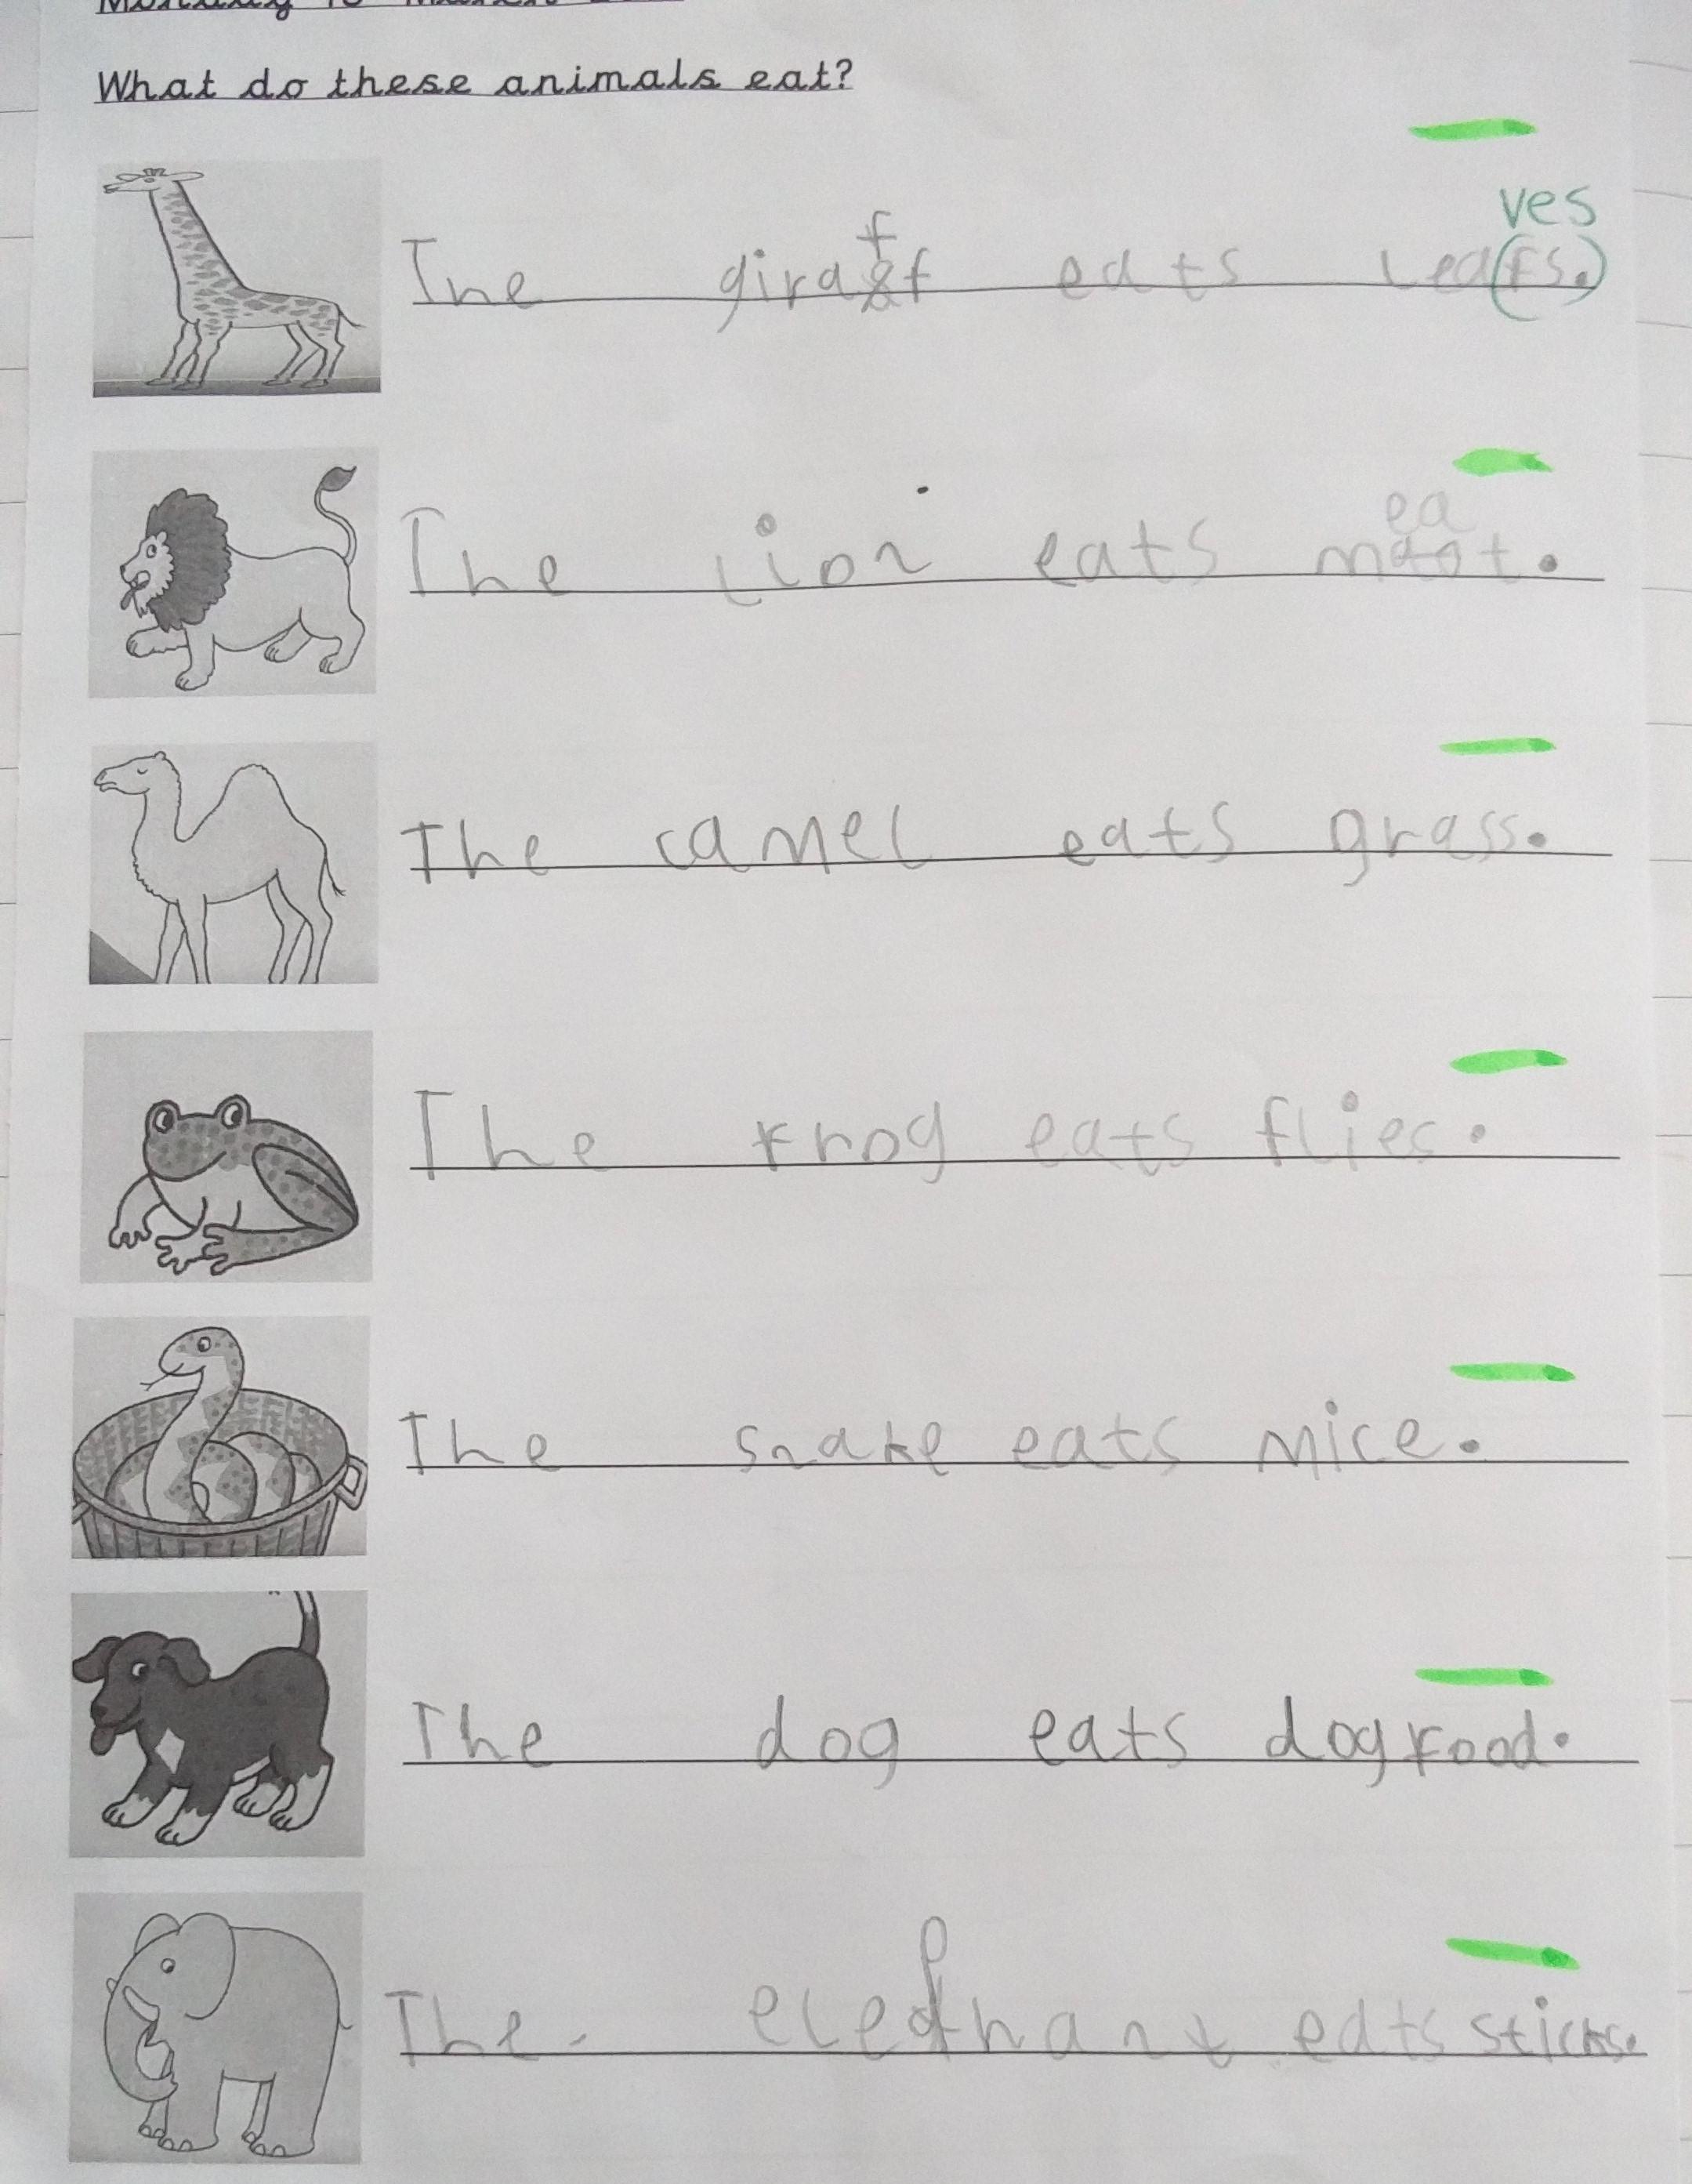 What do these animals eat?
ves
The giraff eats leafs.
ea
The lion eats meat.
The camel eats grass.
The frog eats flies.
The snake eats mice.
The dog eats dogfood.
The elephant eats sticks.